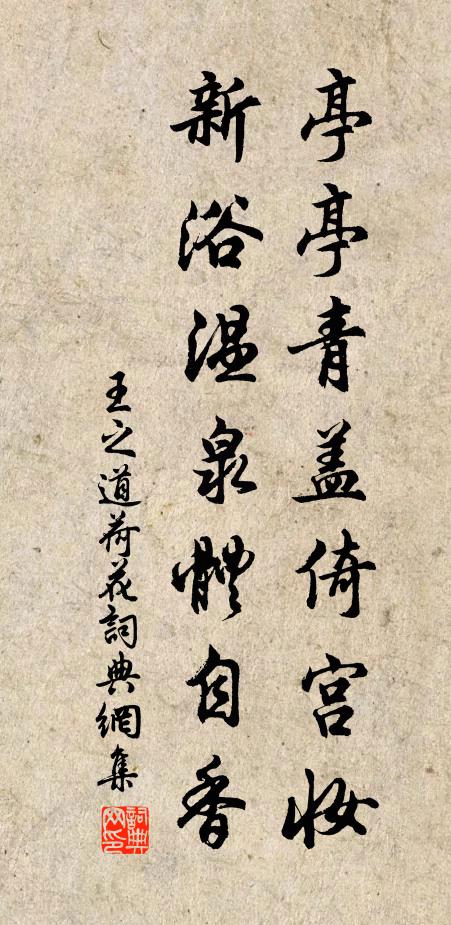 亭亭青盖倚宫妆
新浴温泉體自香
王之道荷花詞典網集
詞典網印